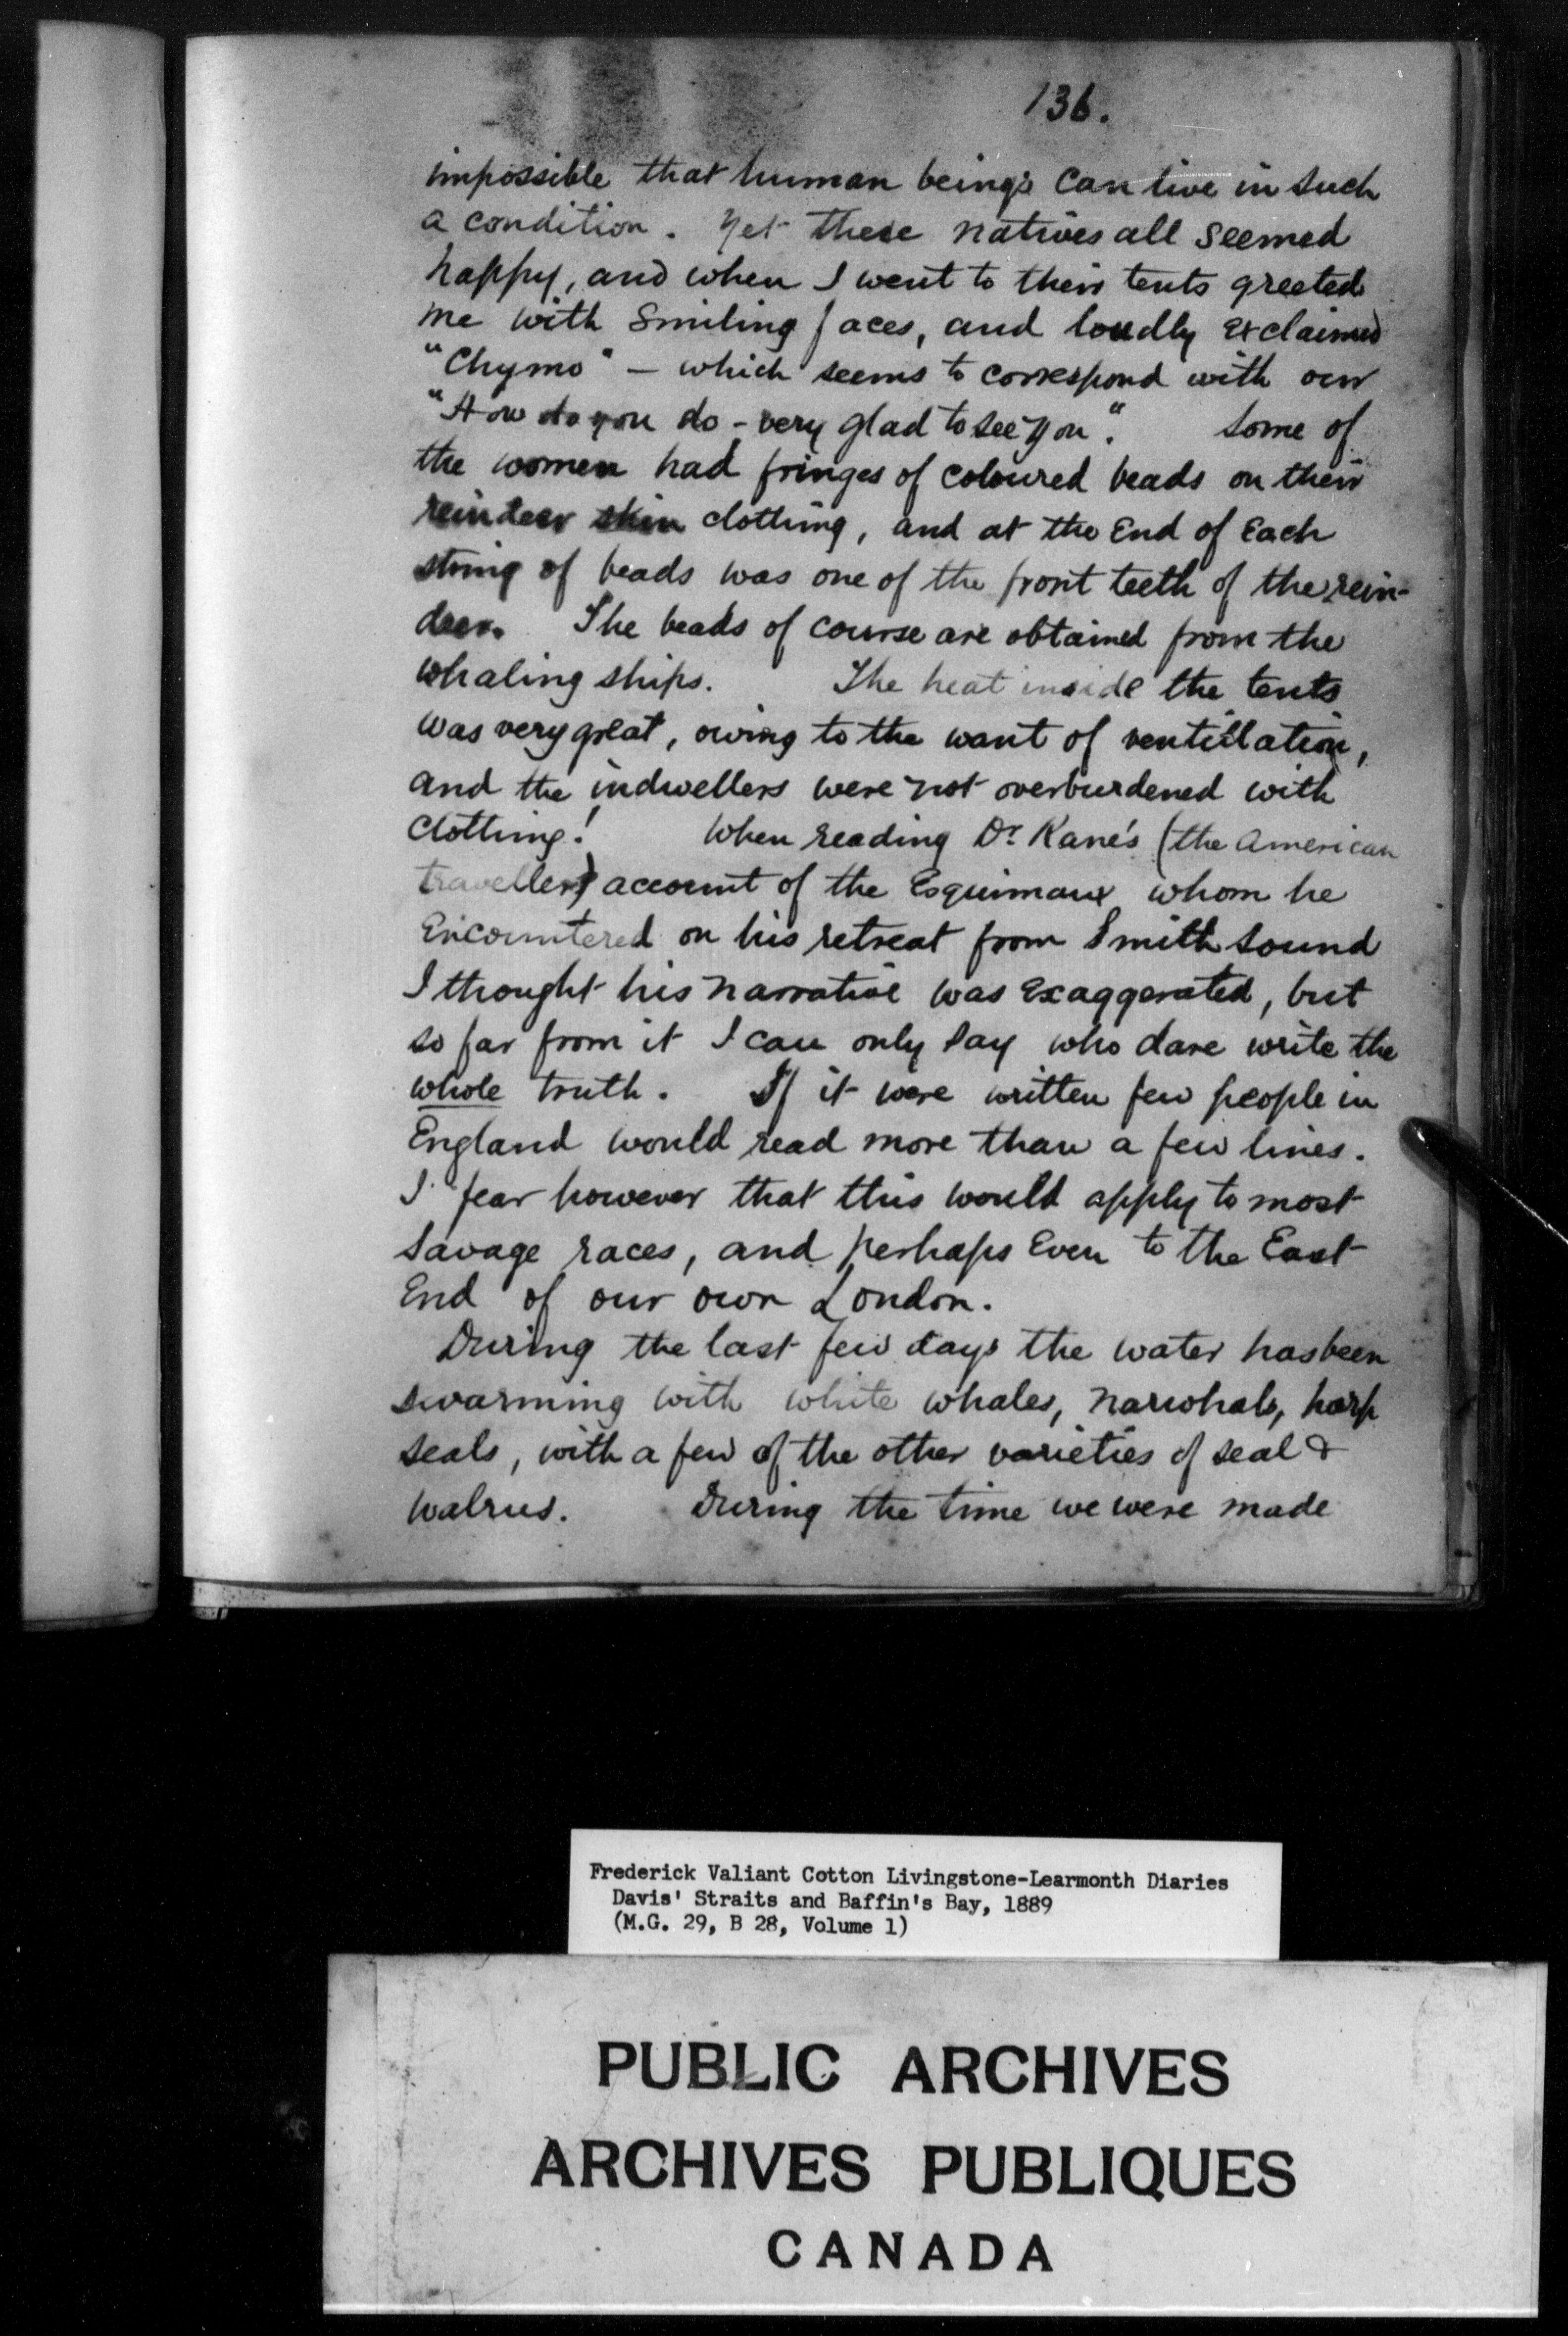 136.
impossible that human beings can live in such
a condition. Yet these natives all seemed
happy, and when I went to their tents greeted
me with smiling faces, and loudly exclaimed
"Chymo" – which seems to correspond with our
"How do you do - very glad to see you". Some of
the women had fringes of coloured beads on their
reindeer skin clothing, and at the End of Each
string of beads was one of the front teeth of the rein-
deer. The beads of course are obtained from the
whaling ships. The heat inside the tents
was very great, owing to the want of ventillation,
and the indwellers were not overburdened with
clothing! When reading Dr Kane's (the American
traveller) account of the Esquimaux whom he
Encountered on his retreat from Smith Sound
I thought his narrative was Exaggerated, but
so far from it I can only say who dare write the
whole truth. If it were written few people in
England would read more than a few lines.
I fear however that this would apply to most
savage races, and perhaps Even to the East
End of our own London.
During the last few days the water has been
swarming with white whales, narwhals, harp
seals, with a few of the other varieties of seal &
walrus. During the time we were made
Frederick Valiant Cotton Livingstone-Learmonth Diaries
Davis' Straits and Baffin's Bay, 1889
(M.G. 29, B 28, Volume 1)
PUBLIC ARCHIVES
ARCHIVES PUBLIQUES
CANADA